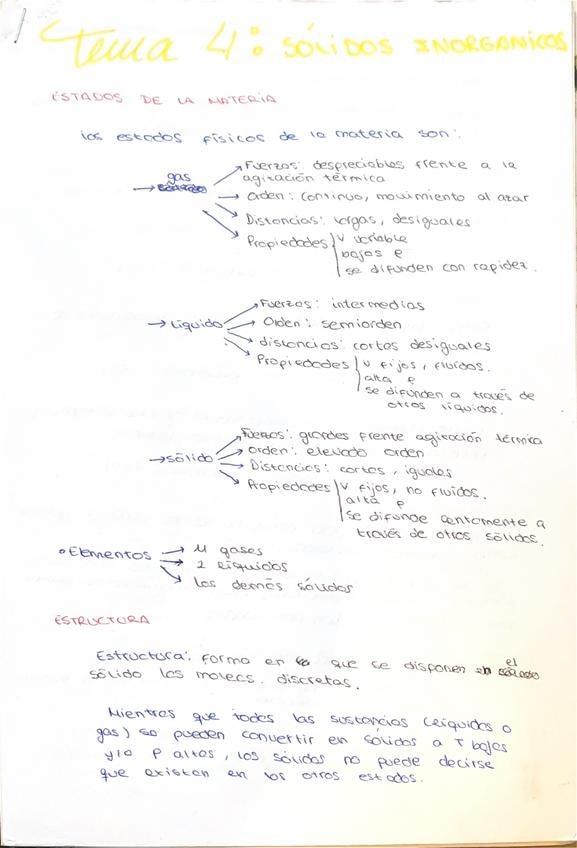 Tema 4: SÓLIDOS INORGANICOS
ESTADOS DE LA MATERIA
los estados físicos de la materia son:
→ gas
Fuerzas: despreciables frente a la
agitación térmica
→ Orden: continuo, movimiento al azar
Distancias: largas, desiguales
Propiedades V variable
bajas ρ
se difunden con rapidez.
→ Líquido
Fuerzas: intermedias
Orden: semiorden
distancias: cortas desiguales
Propiedades V fijos, fluidos.
alta ρ
se difunden a través de
otros líquidos.
→ sólido
Fuerzas: grandes frente agitación térmica
orden: elevado orden
Distancias: cortas, iguales
Propiedades V fijos, no fluidos.
alta ρ
se difunde lentamente a
través de otros sólidos.
• Elementos → 11 gases
→ 2 líquidos
los demás sólidos
ESTRUCTURA
Estructura: forma en la que se disponen el
sólido las molecs. discretas.
Mientras que todas las sustancias (líquidos o
gas) se pueden convertir en sólidos a T bajas
y/o P altas, los sólidos no puede decirse
que existan en los otros estados.